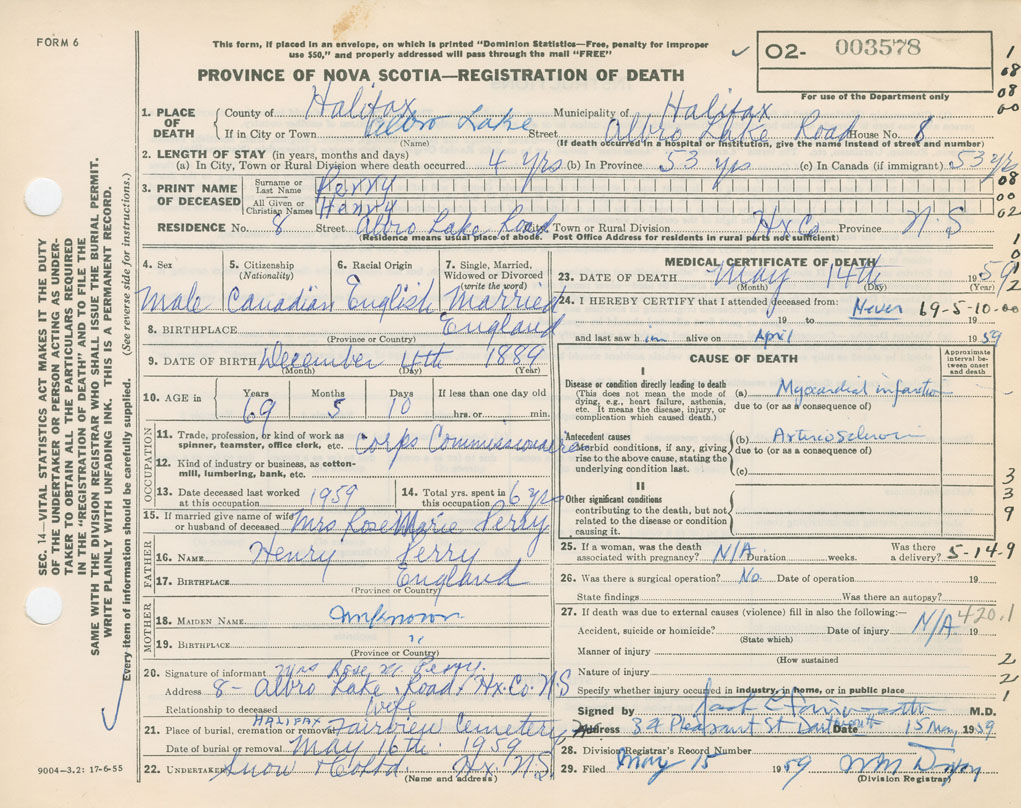 FORM 6
This form, if placed in an envelope, on which is printed "Dominion Statistics—Free, penalty for improper
use $50," and properly addressed will pass through the mail "FREE"
02- 003578
For use of the Department only
PROVINCE OF NOVA SCOTIA—REGISTRATION OF DEATH
1. PLACE OF DEATH County of Halifax Municipality of Halifax
If in City or Town Albro Lake Street Albro Lake Road House No. 8
(Name) (If death occurred in a hospital or institution, give the name instead of street and number)
2. LENGTH OF STAY (in years, months and days)
(a) In City, Town or Rural Division where death occurred 4 yrs (b) In Province 53 yrs (c) In Canada (if immigrant) 53 yrs
3. PRINT NAME OF DECEASED Surname or Last Name Perry
All Given or Christian Names Henry
RESIDENCE No. 8 Street Albro Lake Road Town or Rural Division Hx Co Province N.S
(Residence means usual place of abode. Post Office Address for residents in rural parts not sufficient)
4. Sex 5. Citizenship (Nationality) 6. Racial Origin 7. Single, Married, Widowed or Divorced (write the word)
Male Canadian English Married
8. BIRTHPLACE England
(Province or Country)
9. DATE OF BIRTH December 4th 1889
(Month) (Day) (Year)
10. AGE in Years Months Days If less than one day old
69 5 10 hrs. or min.
OCCUPATION
11. Trade, profession, or kind of work as spinner, teamster, office clerk, etc. Corps Commissionaires
12. Kind of industry or business, as cotton-mill, lumbering, bank, etc.
13. Date deceased last worked at this occupation 1959
14. Total yrs. spent in this occupation 6 yrs
15. If married give name of wife or husband of deceased Mrs Rose Marie Perry
FATHER
16. NAME Henry Perry
17. BIRTHPLACE England
(Province or Country)
MOTHER
18. MAIDEN NAME Unknown
19. BIRTHPLACE "
(Province or Country)
20. Signature of informant Mrs Rose M. Perry.
Address 8 - Albro Lake Road Hx. Co. N.S
Relationship to deceased Wife
21. Place of burial, cremation or removal HALIFAX Fairview Cemetery
Date of burial or removal May 16th 1959
22. UNDERTAKER Snow & Co Ltd Hx. N.S
(Name and address)
MEDICAL CERTIFICATE OF DEATH
23. DATE OF DEATH May 14th 1959
(Month) (Day) (Year)
24. I HEREBY CERTIFY that I attended deceased from: Never 69-5-10-00
19 to 19
and last saw him alive on April 1959
CAUSE OF DEATH
Approximate interval between onset and death
I
Disease or condition directly leading to death
(This does not mean the mode of dying, e.g., heart failure, asthenia, etc. It means the disease, injury, or complication which caused death.)
(a) Myocardial infarction
due to (or as a consequence of)
Antecedent causes
Morbid conditions, if any, giving rise to the above cause, stating the underlying condition last.
(b)
due to (or as a consequence of)
(c)
II
Other significant conditions
contributing to the death, but not related to the disease or condition causing it.
25. If a woman, was the death associated with pregnancy? N/A Duration weeks. Was there a delivery? 5-14-9
26. Was there a surgical operation? No. Date of operation 19
State findings Was there an autopsy?
27. If death was due to external causes (violence) fill in also the following:—
Accident, suicide or homicide? Date of injury N/A 19 420.1
(State which)
Manner of injury
(How sustained)
Nature of injury
Specify whether injury occurred in industry, in home, or in public place
Signed by M.D.
Address 34 Pleasant St Dartmouth Date 15 May 1959
28. Division Registrar's Record Number
29. Filed May 15 1959
(Division Registrar)
SEC. 14—VITAL STATISTICS ACT MAKES IT THE DUTY
OF THE UNDERTAKER OR PERSON ACTING AS UNDER-
TAKER TO OBTAIN ALL THE PARTICULARS REQUIRED
IN THE "REGISTRATION OF DEATH" AND TO FILE THE
SAME WITH THE DIVISION REGISTRAR WHO SHALL ISSUE THE BURIAL PERMIT.
WRITE PLAINLY WITH UNFADING INK. THIS IS A PERMANENT RECORD.
Every item of information should be carefully supplied. (See reverse side for instructions.)
9004-3.2: 17-6-55
1
08
08
00
08
00
02
3
3
9
2
2
1